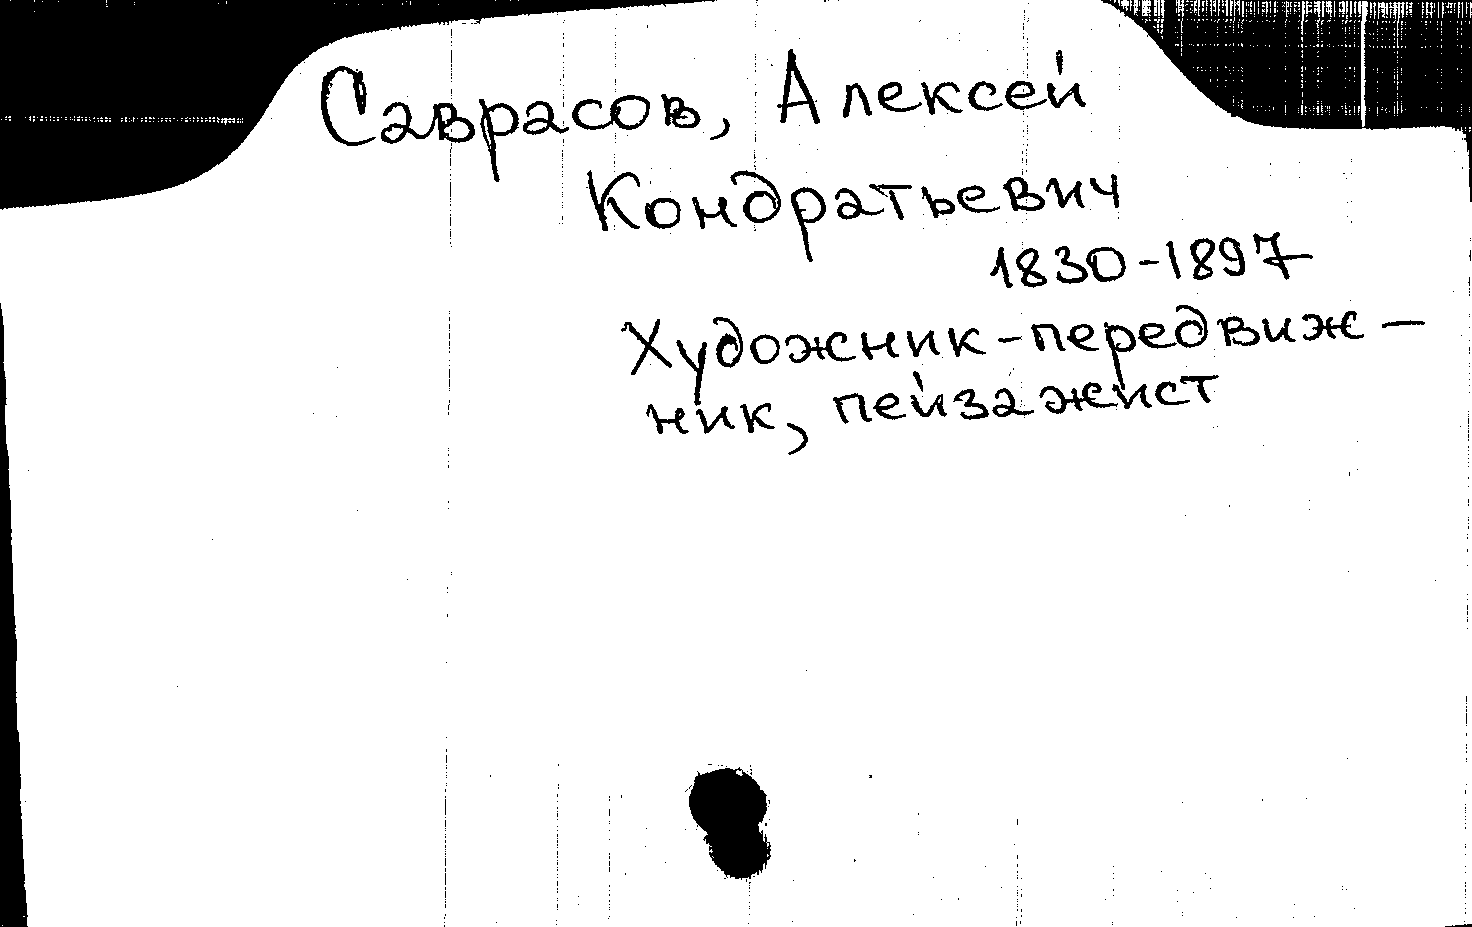 Саврасов, Алексей
Кондратьевич
1830-1897
Художник-передвиж-
ник, пейзажист